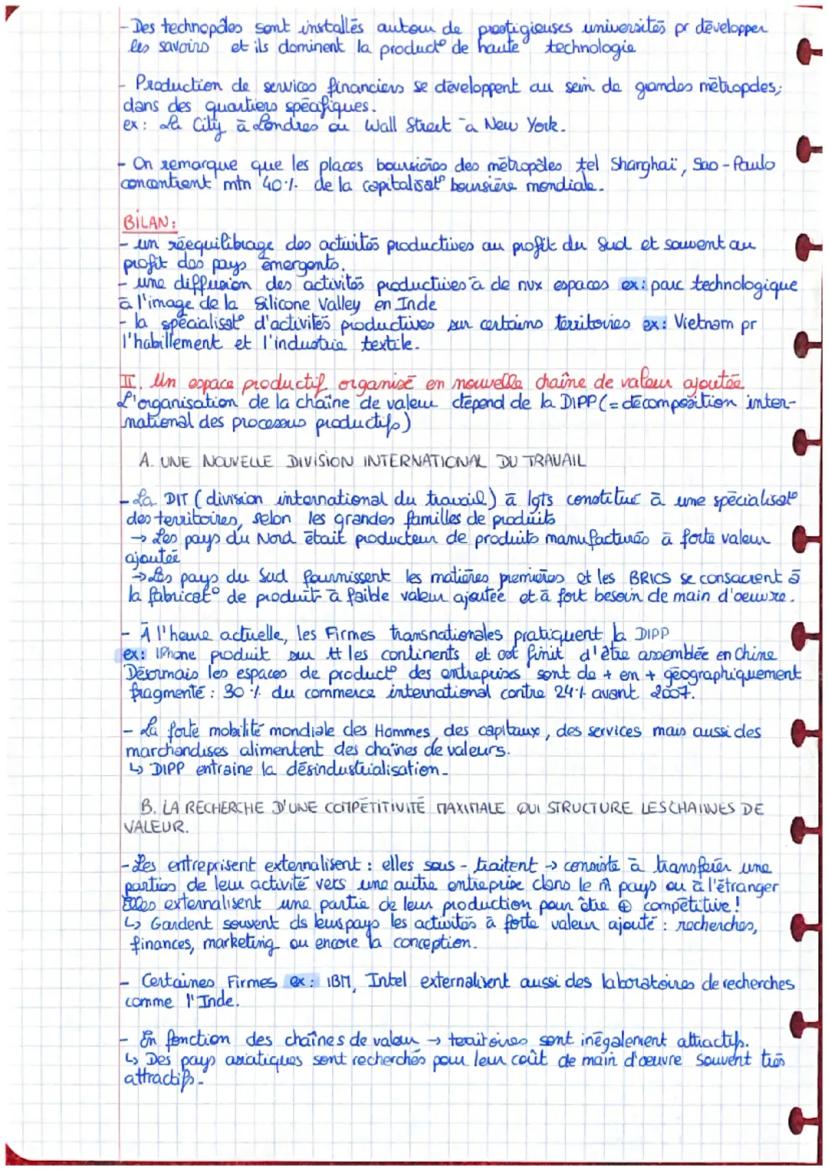 - Des technopôles sont installés autour de prestigieuses universités pr développer
les savoirs et ils dominent la product° de haute technologie
- Production de services financiers se développent au sein de grandes métropoles;
dans des quartiers spécifiques.
ex: La City à Londres ou Wall Street à New York.
- On remarque que les places boursières des métropôles tel Shanghaï, Sao-Paulo
concentrent mtn 40% de la capitalisat° boursière mondiale.
BILAN:
- un rééquilibrage des activités productives au profit du Sud et souvent au
profit des pays émergents.
- une diffusion des activités productives à de nvx espaces ex: parc technologique
à l'image de la Silicone Valley en Inde
- la spécialisat° d'activités productives sur certains territoires ex: Vietnam pr
l'habillement et l'industrie textile.
II. Un espace productif organisé en nouvelle chaîne de valeur ajoutée
L'organisation de la chaîne de valeur dépend de la DIPP (= décomposition inter-
national des processus productifs)
A. UNE NOUVELLE DIVISION INTERNATIONAL DU TRAVAIL
- La DIT (division international du travail) à lgts constitué à une spécialisat°
des territoires, selon les grandes familles de produits
→ Les pays du Nord était producteur de produits manufacturés à forte valeur
ajoutée
→ Les pays du Sud fournissent les matières premières et les BRICS se consacrent à
la fabricat° de produit à faible valeur ajoutée et à fort besoin de main d'oeuvre.
- À l'heure actuelle, les Firmes transnationales pratiquent la DIPP
ex: iPhone produit sur tt les continents et est finit d'être assemblée en Chine
Désormais les espaces de product° des entreprises sont de + en + géographiquement
fragmenté : 30% du commerce international contre 24% avant 2007.
- La forte mobilité mondiale des Hommes, des capitaux, des services mais aussi des
marchandises alimentent des chaînes de valeurs.
↳ DIPP entraine la désindustrialisation.
B. LA RECHERCHE D'UNE COMPÉTITIVITÉ MAXIMALE QUI STRUCTURE LES CHAINES DE
VALEUR.
- Les entreprisent externalisent : elles sous-traitent → consiste à transférer une
parties de leur activité vers une autre entreprise dans le m̂ pays ou à l'étranger
Elles externalisent une partie de leur production pour être ⊕ compétitive!
↳ Gardent souvent ds leurs pays les activités à forte valeur ajouté : recherches,
finances, marketing ou encore la conception.
- Certaines Firmes ex: IBM, Intel externalisent aussi des laboratoires de recherches
comme l'Inde.
- En fonction des chaînes de valeur → territoires sont inégalement attractifs.
↳ Des pays asiatiques sont recherchés pour leur coût de main d'œuvre souvent très
attractifs.